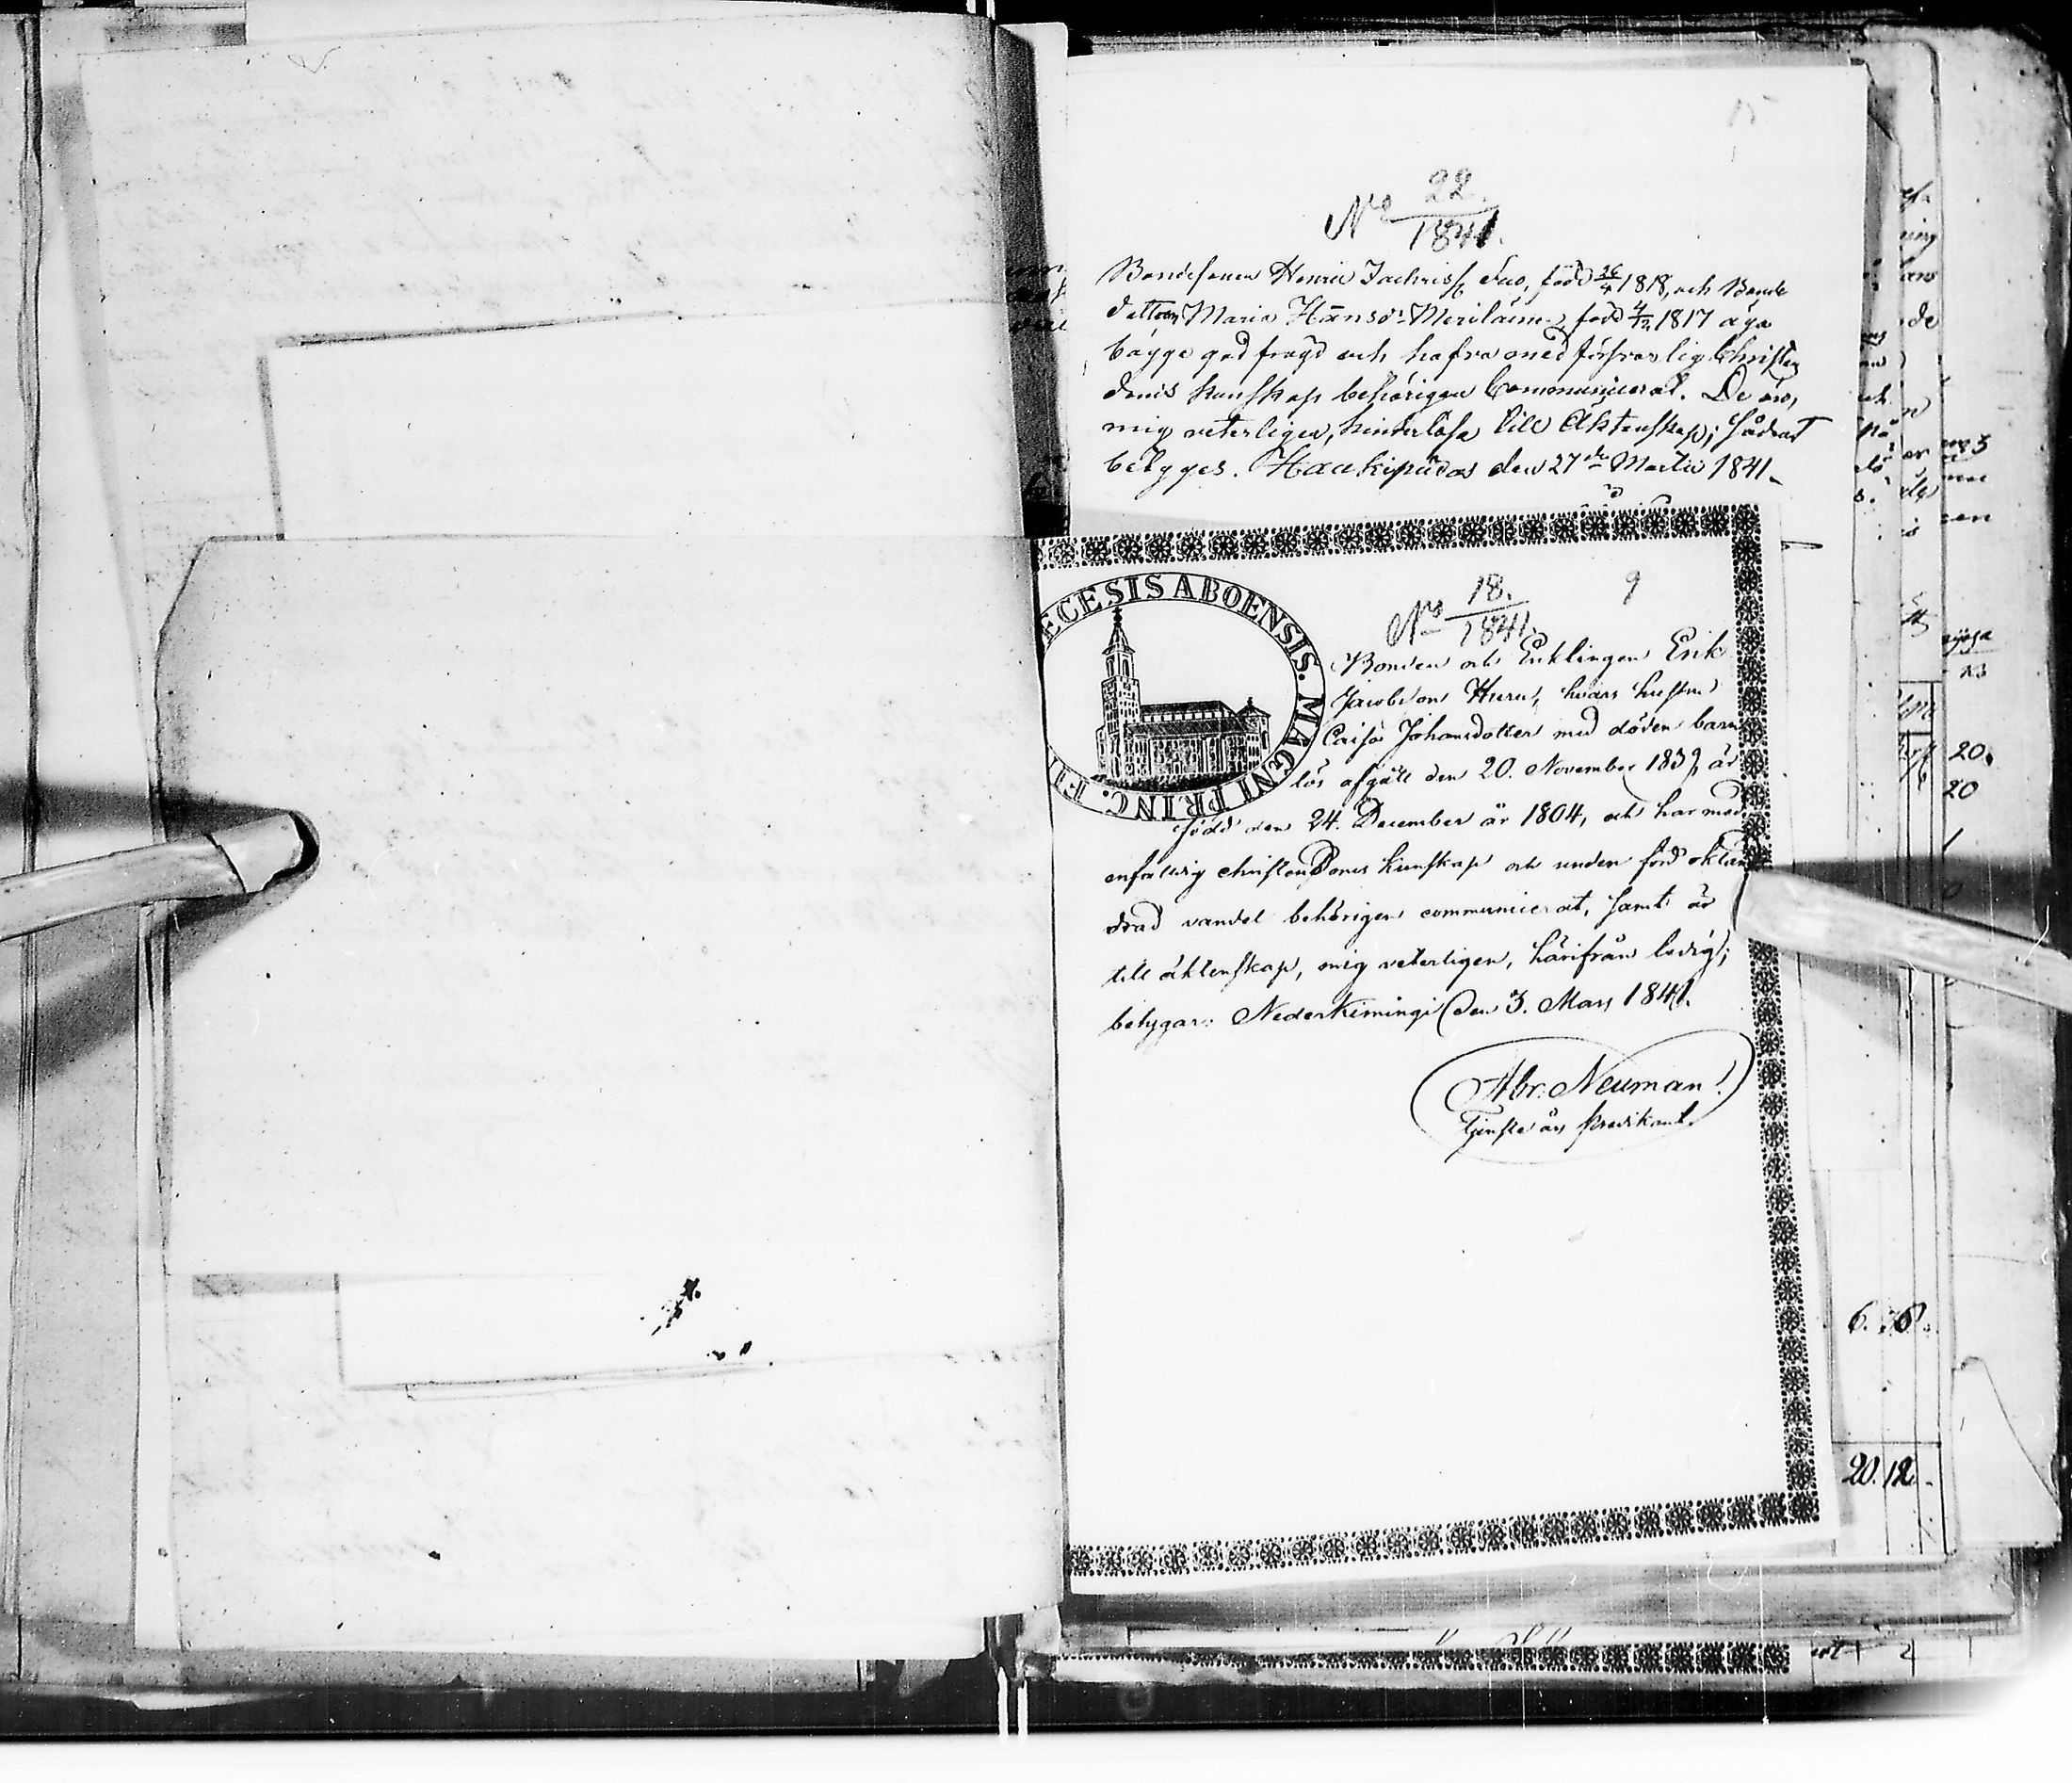 15
No 22.
1841.
Bondesonen Henric Zachriss Juo, född 26/4 1818, och Bonde
dottren Maria Hansdr Meriläinen, född 4/12 1817 äga
bägge god frägd och hafva med försvarlig Christen
doms kunskap behörigen Communicerat. De äro,
mig veterligen, hinderlösa till Äktenskap; sådant
betyges. Haukipudas den 27de Martii 1841.
No 18.
1841.
9
ECESIS ABOENSIS. MAGNI PRINC. FI
Bonden och Enklingen Erik
Jacobsson Huru, hvars hustru
Caisa Johansdotter med döden barn
lös afgått den 20. November 1839, är
född den 24. December år 1804, och har med
enfaldig christendoms kunskap och under ford oklan
drad vandel behörigen communicerat, samt är
till äktenskap, mig veterligen, härifrån ledig;
betygar: Nederkimingi den 3. Mars 1841.
Abr. Neuman
Tjenste års Predikant.
20.
20
6. 16.
20. 12.